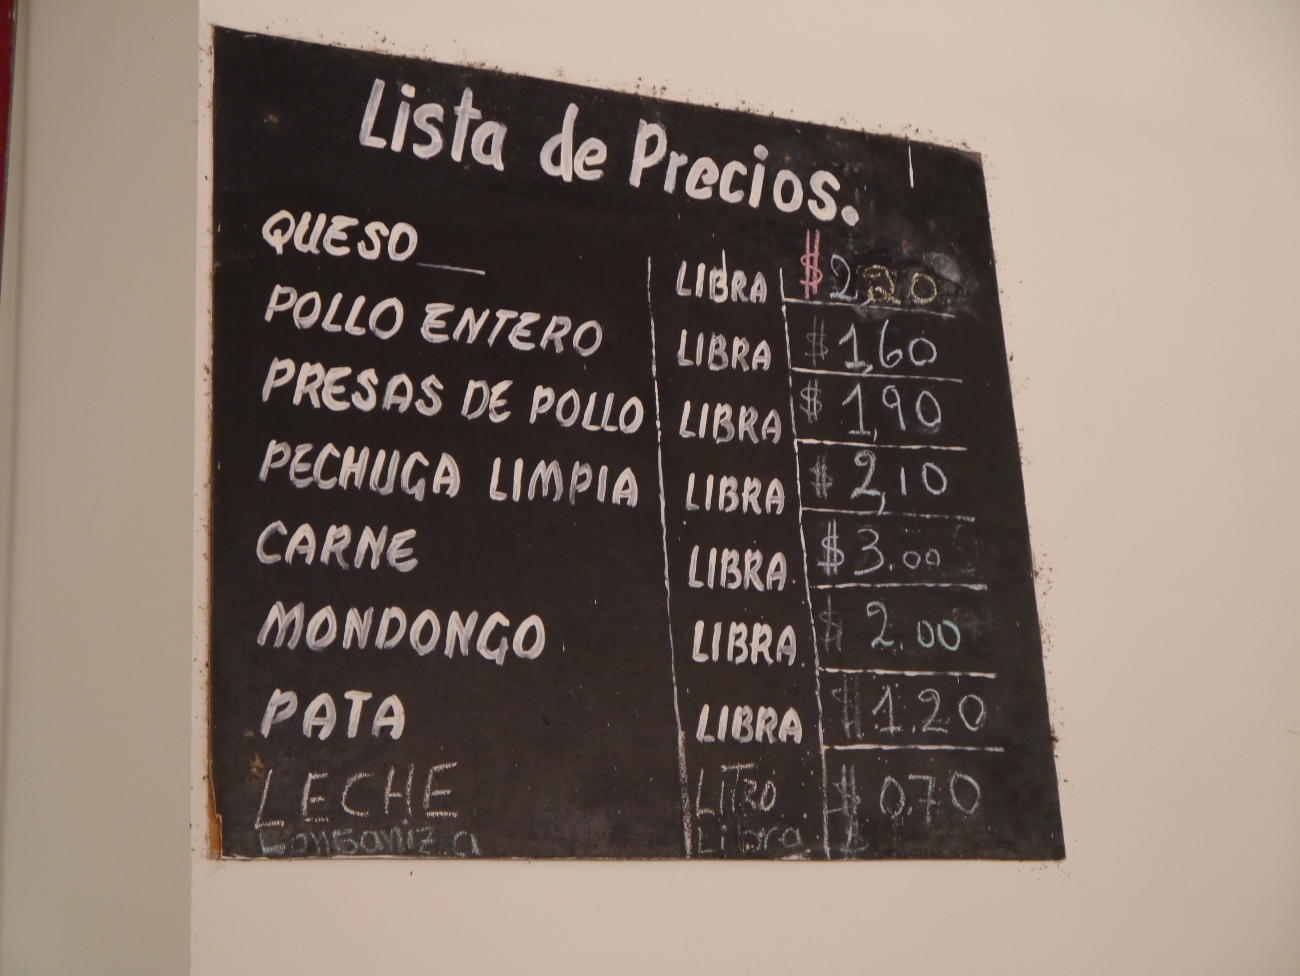 Lista de Precios.
QUESO__ LIBRA $2,20
POLLO ENTERO LIBRA $1,60
PRESAS DE POLLO LIBRA $1,90
PECHUGA LIMPIA LIBRA $2,10
CARNE LIBRA $3.00
MONDONGO LIBRA $2.00
PATA LIBRA $1.20
LECHE LITRO $0,70
Libra $